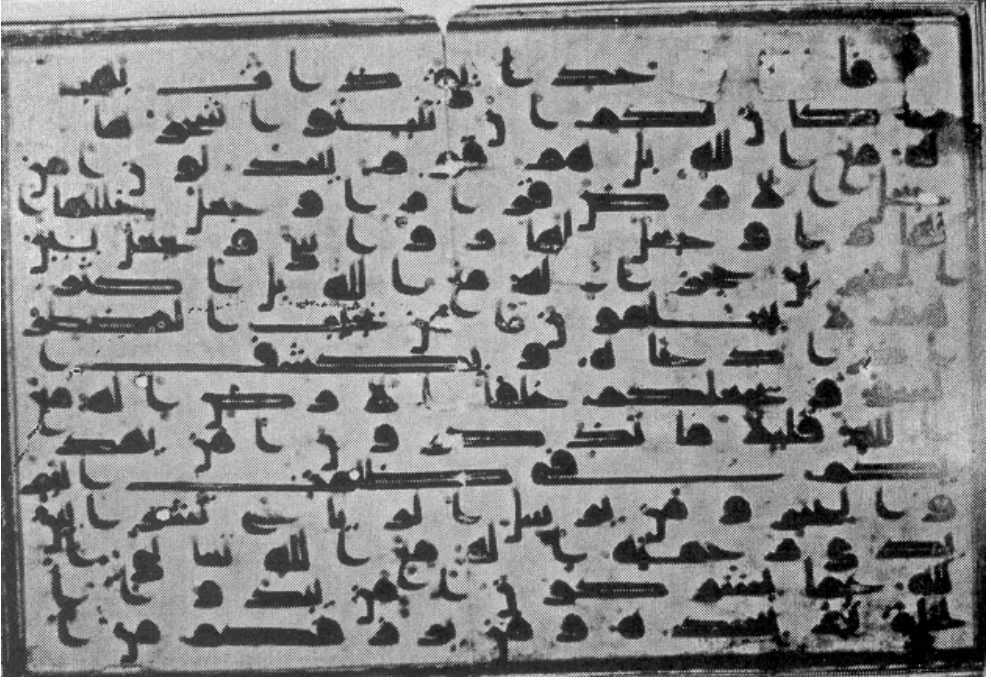 حدائق ذات بهج
ة ما كان لكم ان تنبتوا شجرها
اله مع الله بل هم قوم يعدلون امن
جعل الارض قرارا وجعل خللها ا
نهرا وجعل لها روسي وجعل بين
البحرين حاجزا اله مع الله بل اكثر
هم لا يعلمون امن يجيب المضطر
اذا دعاه ويكشف ا
لسو ويجعلكم خلفا الارض اله مع
الله قليلا ما تذكرون امن يهد
يكم في ظلمت البر
والبحر ومن يرسل الريح بشرا بين
يدي رحمته اله مع الله تعلى ا
لله عما يشركون امن يبدوا ا
لخلق ثم يعيده ومن يرزقكم من